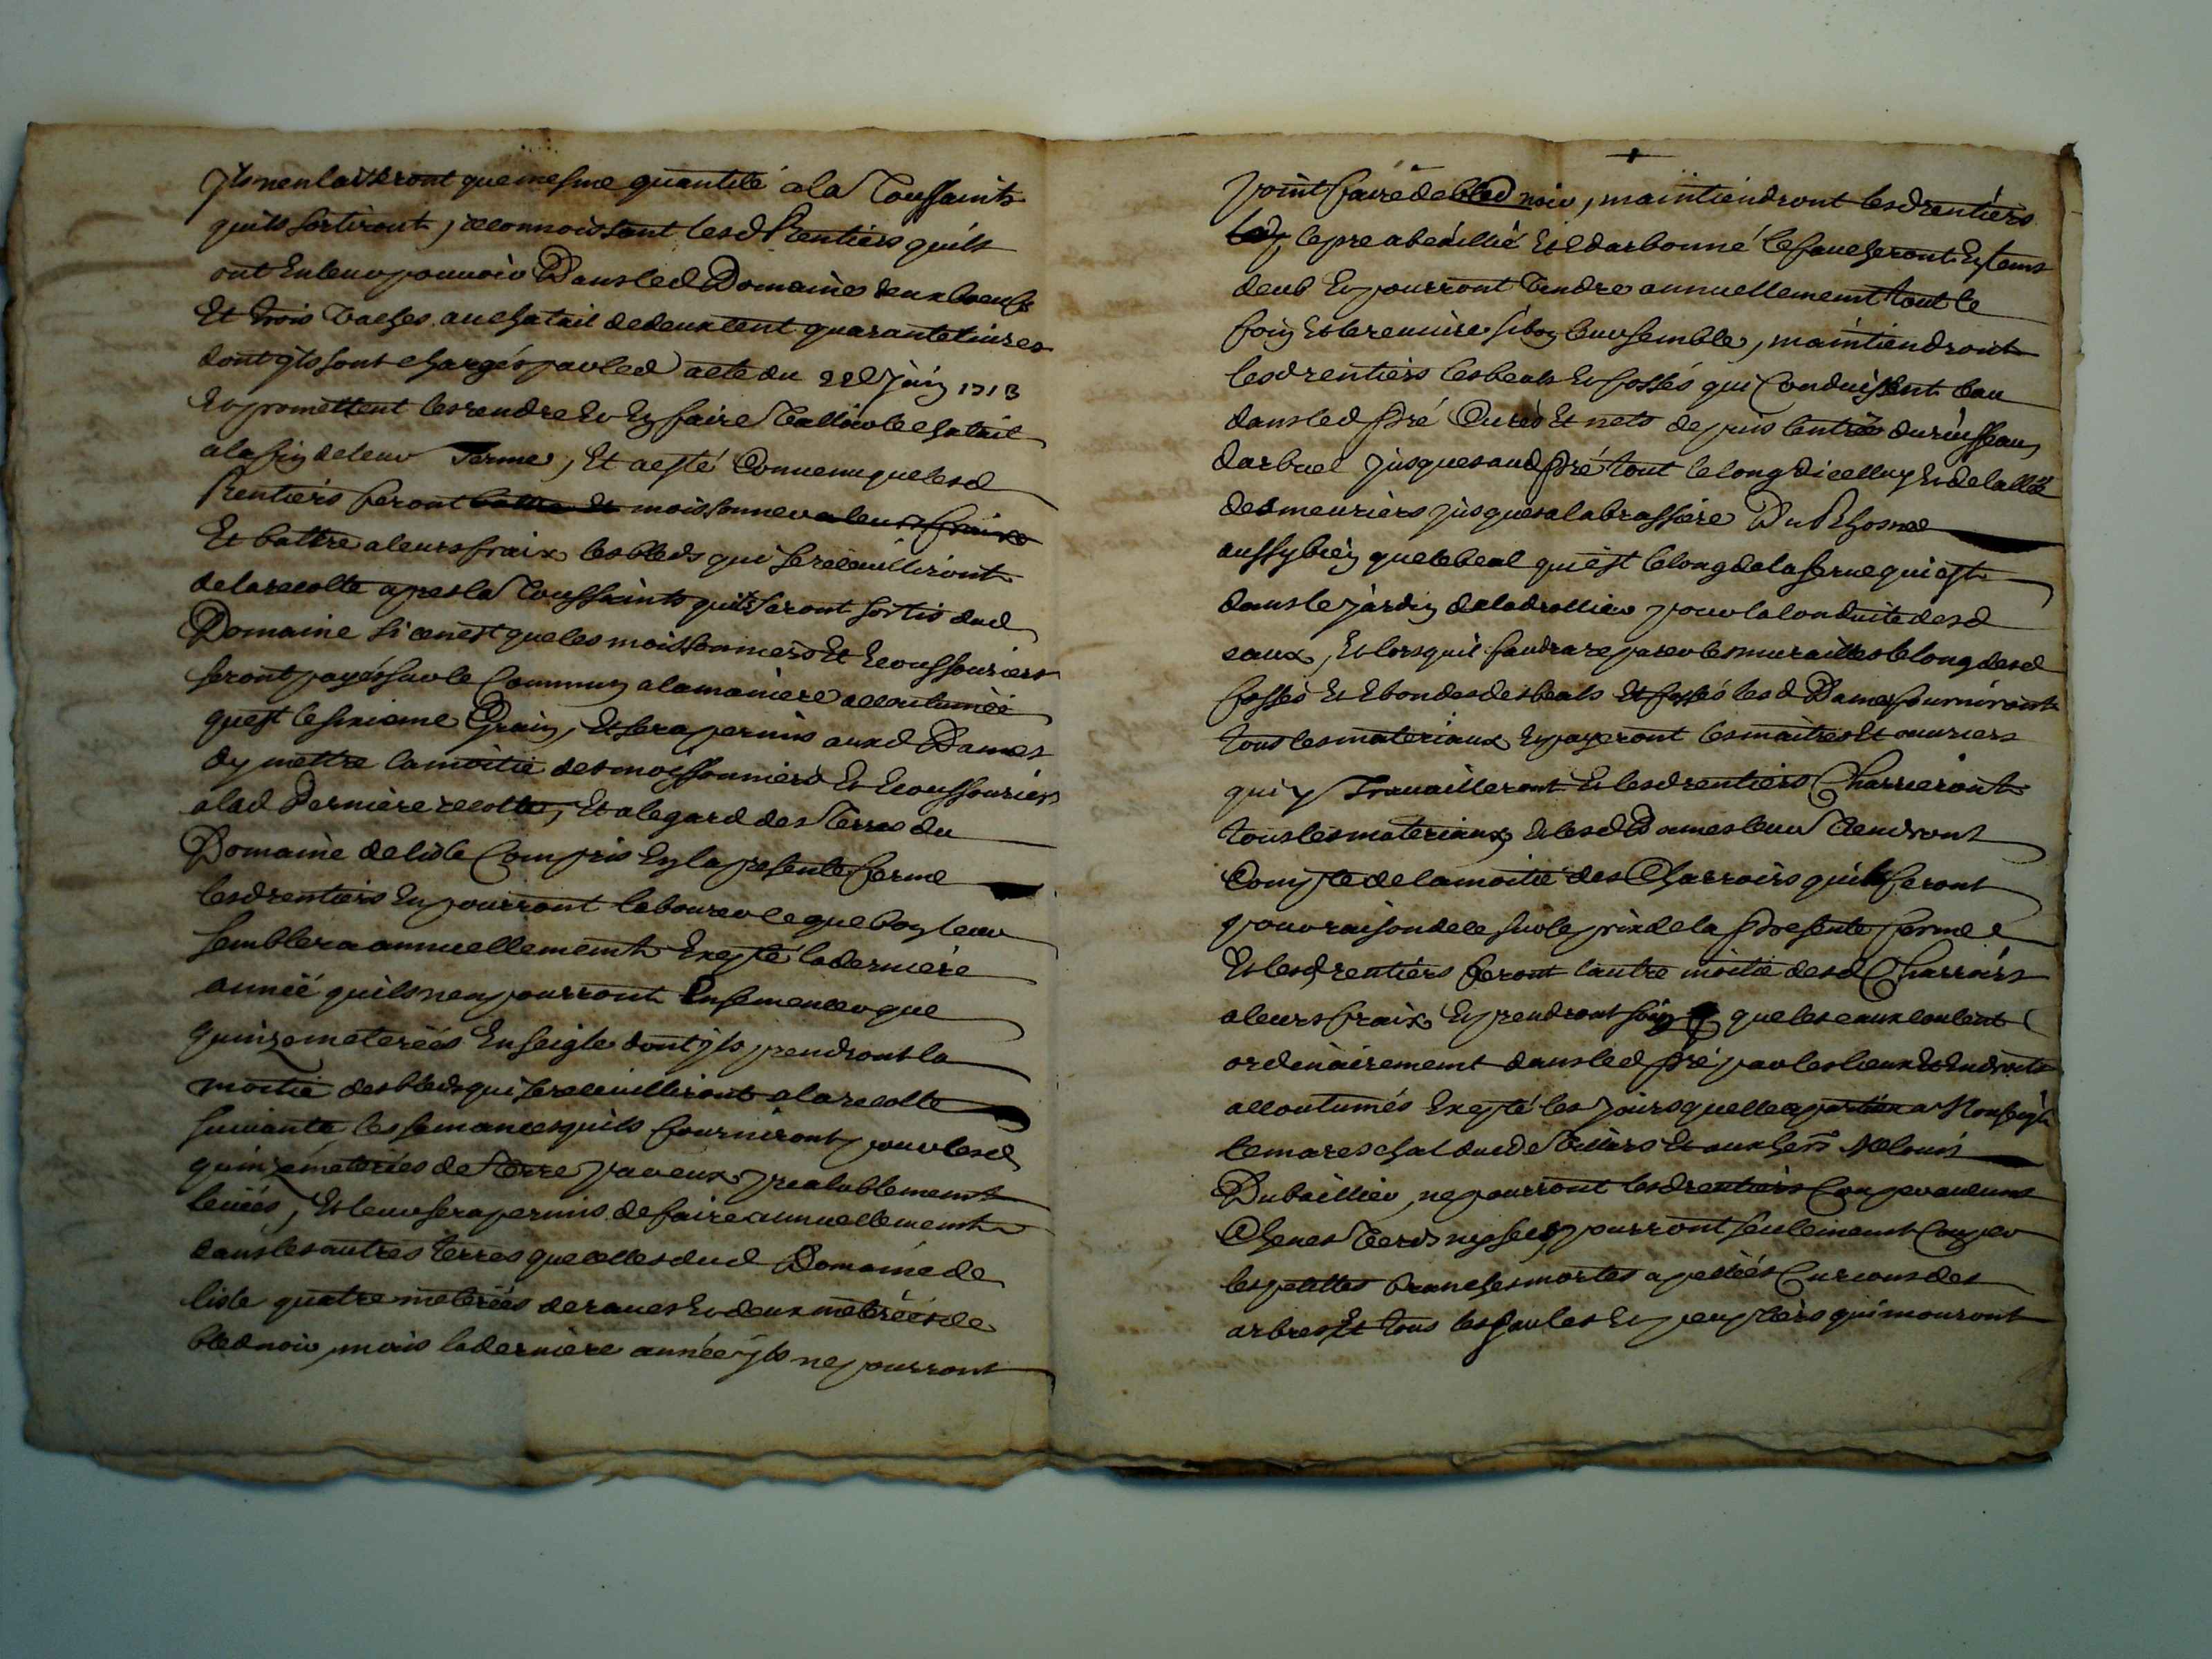 Jls nen laisseront que mesme quantité a la Toussaint
quils sortiront, reconnoissant lesd Rentiers quils
ont En leur pouvoir Dans led Domaine deux boeufs
Et trois Vaches au chatail de deux cent quarante livres
dont jls sont chargés par led acte du 22e Juin 1713
Et promettent les rendre Et En faire Valloir le chatail
a la fin de leur Ferme, Et a esté Convenu que lesd
Rentiers feront battre Et moissonner a leurs fraix
Et battre a leurs fraix les bleds qui se receuilliront
de la recolte apres la Toussaints quils seront sortis dud
Domaine si ce nest que les moissonniers Et Ecoussouriers
seront payés sur le Commun a la maniere accoutumée
quest le sixieme Grain, Et sera permis auxd Dames
dy mettre la moitié des moissonniers Et Ecoussouriers
a lad Derniere recolte, Et a legard des Terres du
Domaine de lisle Compris En la presente ferme
lesd rentiers En pourront labourer ce que bon leur
semblera annuellement Exepté la derniere
année quils nen pourront Ensemencer que
quinze meterées En seigle dont jls prendront la
moitié des bleds qui se receuilliront a la recolte
suivante, les semances quils fourniront pour lesd
quinze meterées de Terre par eux prealablement
levées, Et leur sera permis de faire annuellement
dans les autres terres que celles dud Domaine de
lisle quatre meterées de raves Et deux meterées de
bled noir, mais la derniere année jls ne pourront
point faire de bled noir, maintiendront lesd rentiers
le pre abeaillié Et Edarbonné le faucheront En tems
deub Et pourront Vendre annuellement tout le
foin Et le reviure si bon leur semble, maintiendront
lesd rentiers les beals Et fossés qui Conduissent leau
dans led Pré Curés Et nets depuis lentrée du ruisseau
darbuel jusques aud Pré tout le long dicelluy Et de lallée
des meuriers jusques a la brassiere Du Rhosne
aussy bien que le beal qui est le long de la serve qui est
dans le jardin de la drollier pour la Conduite desd
eaux, Et lorsquil faudra reparer les murailles le long desd
fossés Et Ebondes des beals Et fossés lesd Dames fourniront
tous les materiaux Et payeront les maitres Et ouvriers
qui y Travailleront Et lesd rentiers Charrieront
tous les materiaux, Et lesd Dames leur tiendront
Compte de la moitié des Charrois quils feront
pour raison de ce sur le prix de la Presente ferme
Et lesd rentiers feront lautre moitié desd Charrois
a leurs fraix, Et prendront soin que les eaux coulent
ordinairement dans led Pré par les lieux Et Endroits
accoutumés Exepté les jours quelle apartien a Monseigr
le mareschal duc de Villars Et aux hers Mr louis
Dubaillier, ne pourront lesd rentiers Couper aucuns
Chenes Verds ny secs, pourront seulement Couper
les petittes branches mortes apellées Curions des
arbres Et tous les saules Et peupliers qui mouront